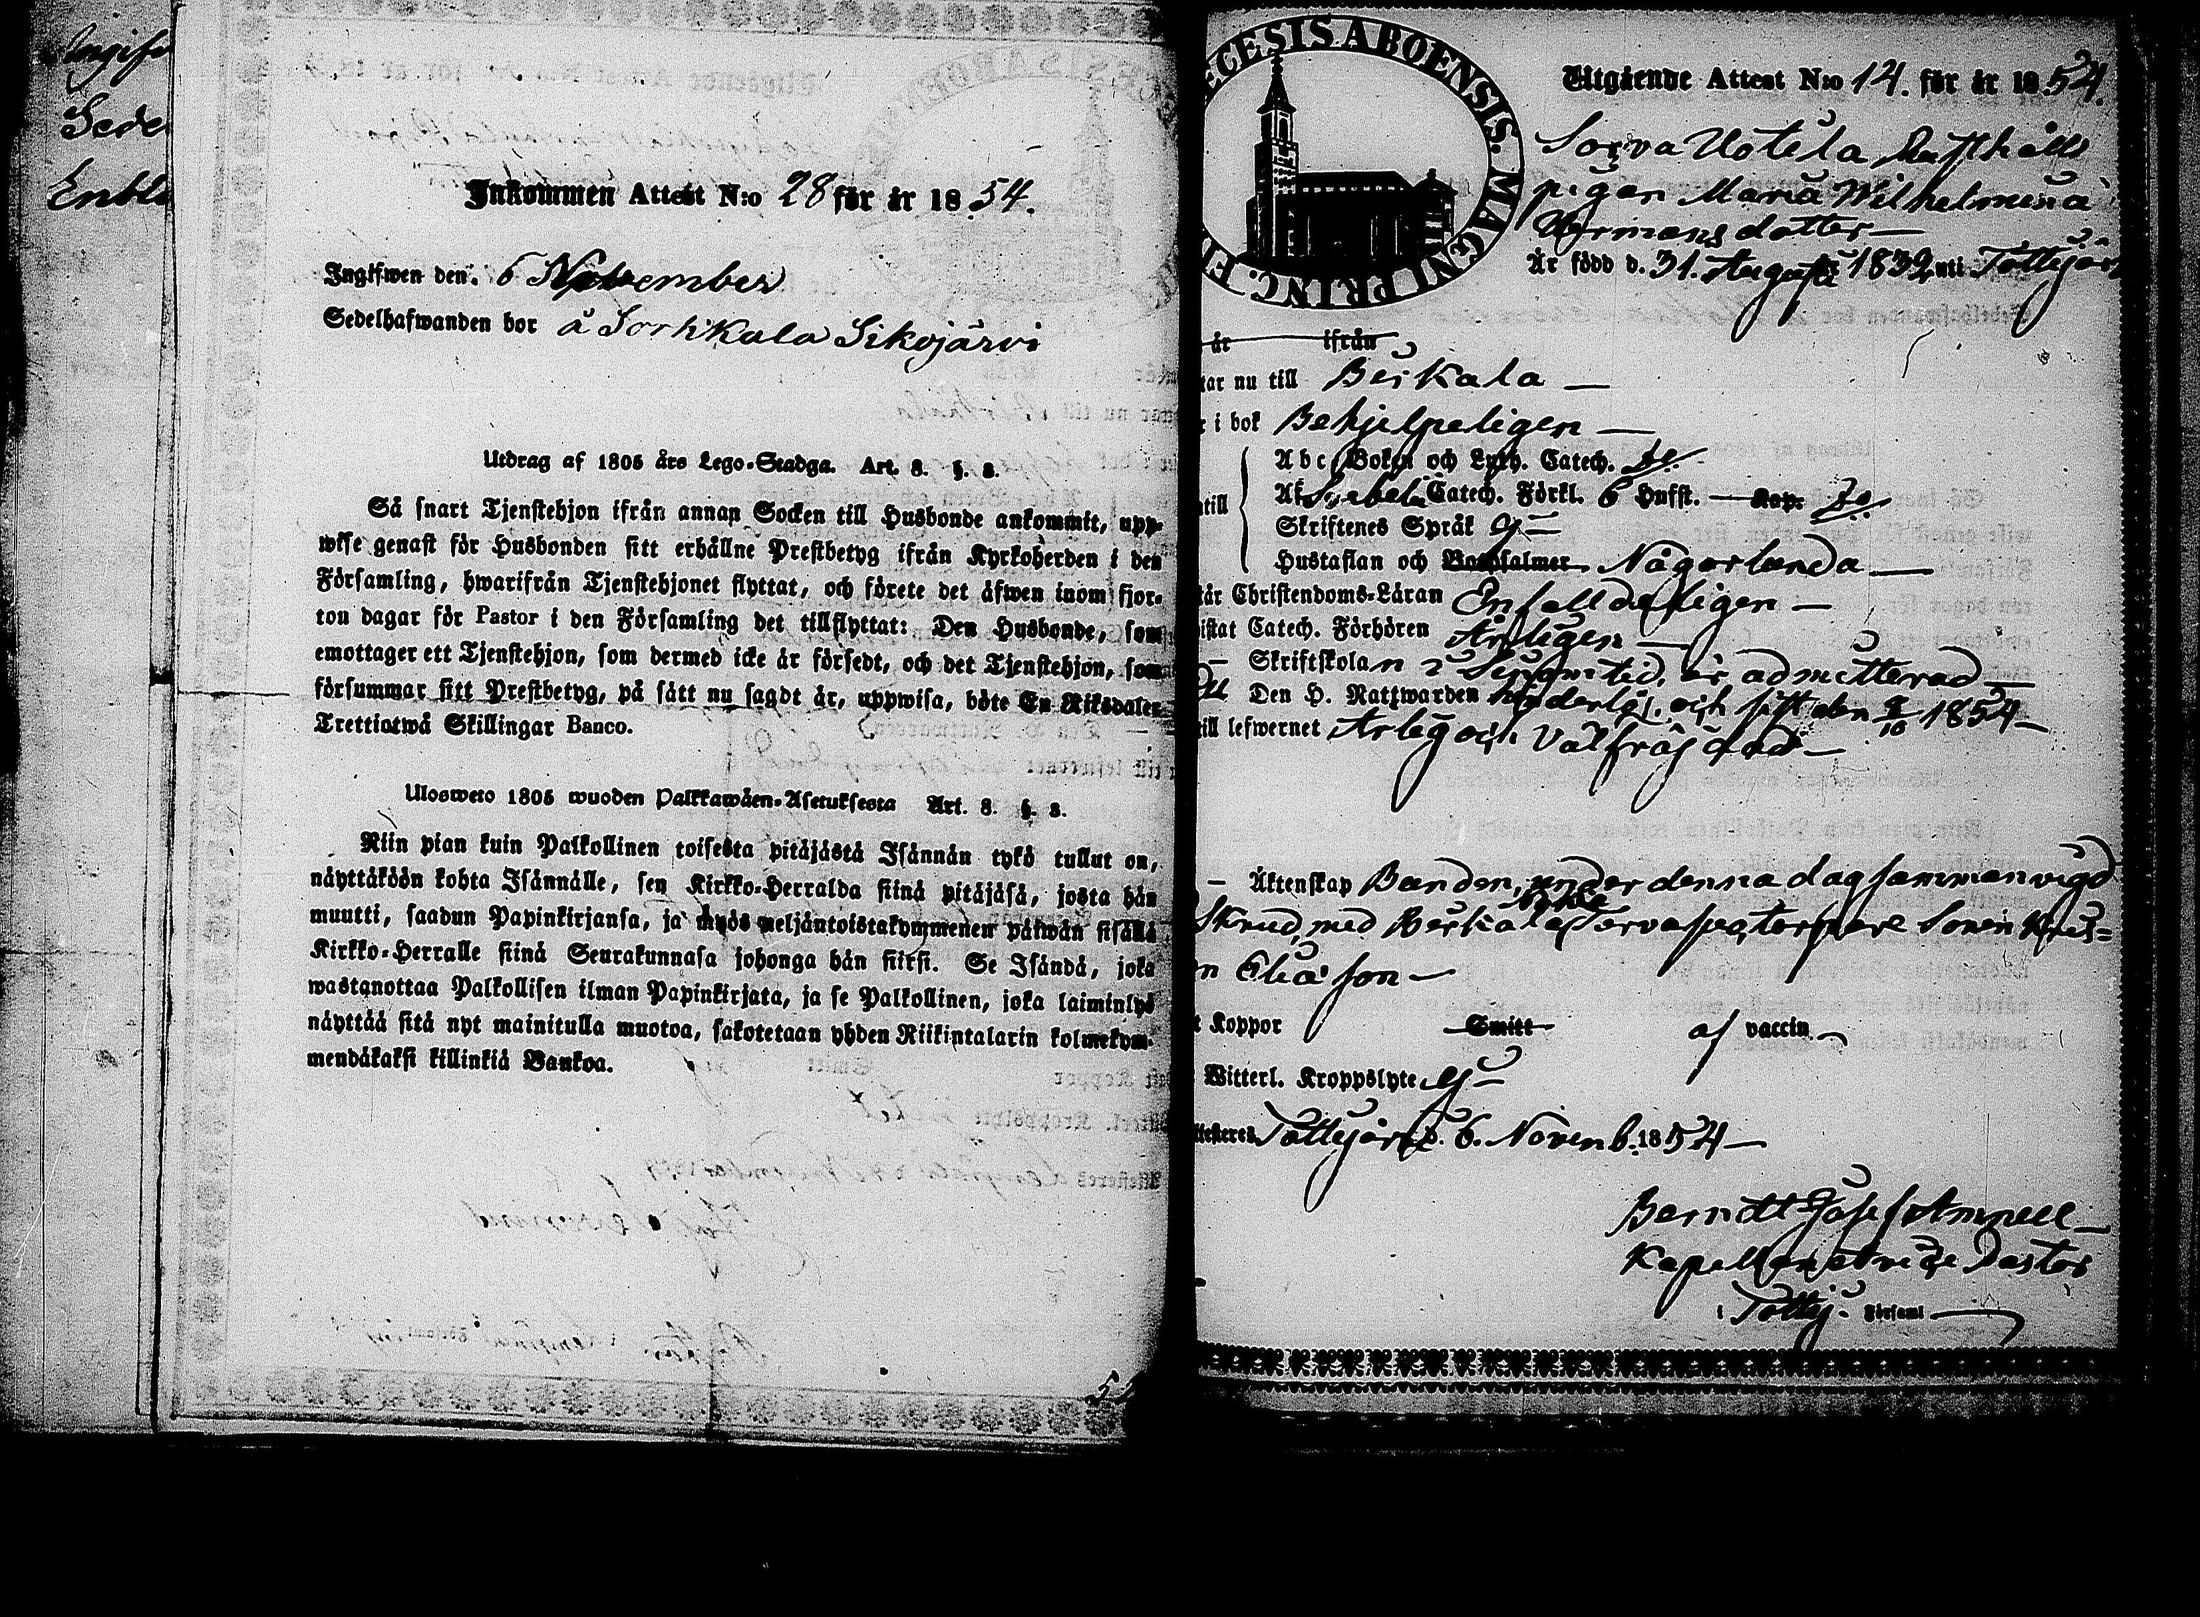 Sede
Inkommen Attest N:o 28 för år 1854.
Ingifwen den 6 November
Sedelhafwanden bor å Sorkkala Sikojärvi
Utdrag af 1805 års Lego-Stadga. Art. 8. §. 8.
Så snart Tjenstehjon ifrån annan Socken till Husbonde ankommit, upp-
wise genast för Husbonden sitt erhållne Prestbetyg ifrån Kyrkoherden i den
Församling, hwarifrån Tjenstehjonet flyttat, och förete det äfwen inom fjor-
ton dagar för Pastor i den Församling det tillflyttat: Den Husbonde, som
emottager ett Tjenstehjon, som dermed icke är försedt, och det Tjenstehjon, som
försummar sitt Prestbetyg, på sätt nu sagdt är, uppwisa, böte En Riksdaler
Trettiotwå Skillingar Banco.
Ulosweto 1805 wuoden Palkkawäen-Asetuksesta Art. 8. §. 8.
Niin pian kuin Palkollinen toisesta pitäjästä Isännän tykö tullut on,
näyttäköön kohta Isännälle, sen Kirkko-Herralda siinä pitäjäsä, josta hän
muutti, saadun Papinkirjansa, ja myös neljäntoistakymmenen päiwän sisällä
Kirkko-Herralle siinä Seurakunnasa johonga hän siirsi. Se Isändä, joka
wastanottaa Palkollisen ilman Papinkirjata, ja se Palkollinen, joka laiminlyö
näyttää sitä nyt mainitulla muotoa, sakotetaan yhden Riikintalarin kolmekym-
mendäkaksi killinkiä Bankoa.
ECESIS ABOENSIS. MAGNI PRINC. FI
Utgående Attest N:o 14. för år 1854.
Sorva Uotila Rusthålls
pigan Maria Wilhelmina
Hermansdotter
Är född d. 31. Augusti 1832 uti Tottijärvi
är ifrån
tar nu till Birkala
r i bok Behjelpeligen
Abc Boken och Luth. Catech.
Catech. Förkl. 6 Hufst. Kap.
ntill
Skriftenes Språk Ej
Hustaflan och Botpsalmer Några kunda
tår Christendoms-Läran Enfaldeligen
istat Catech. Förhören Årligen
Skriftskolan i sinom tid, är admitterad
Den H. Nattwarden och sist den 8/10 1854
till lefwernet Ärlig och Välfrägdad
Äktenskap Banden, under denna dag sammanvigd
med Birkala torpare Sonen
n Eliasson
t Koppor Smitt af vaccin
Witterl. Kroppslyte Ej
ttesteres Tottijärvi d. 6. Novemb. 1854
Berndt Josef Amnell
Kapellan Pastor
i Tottij. Församl